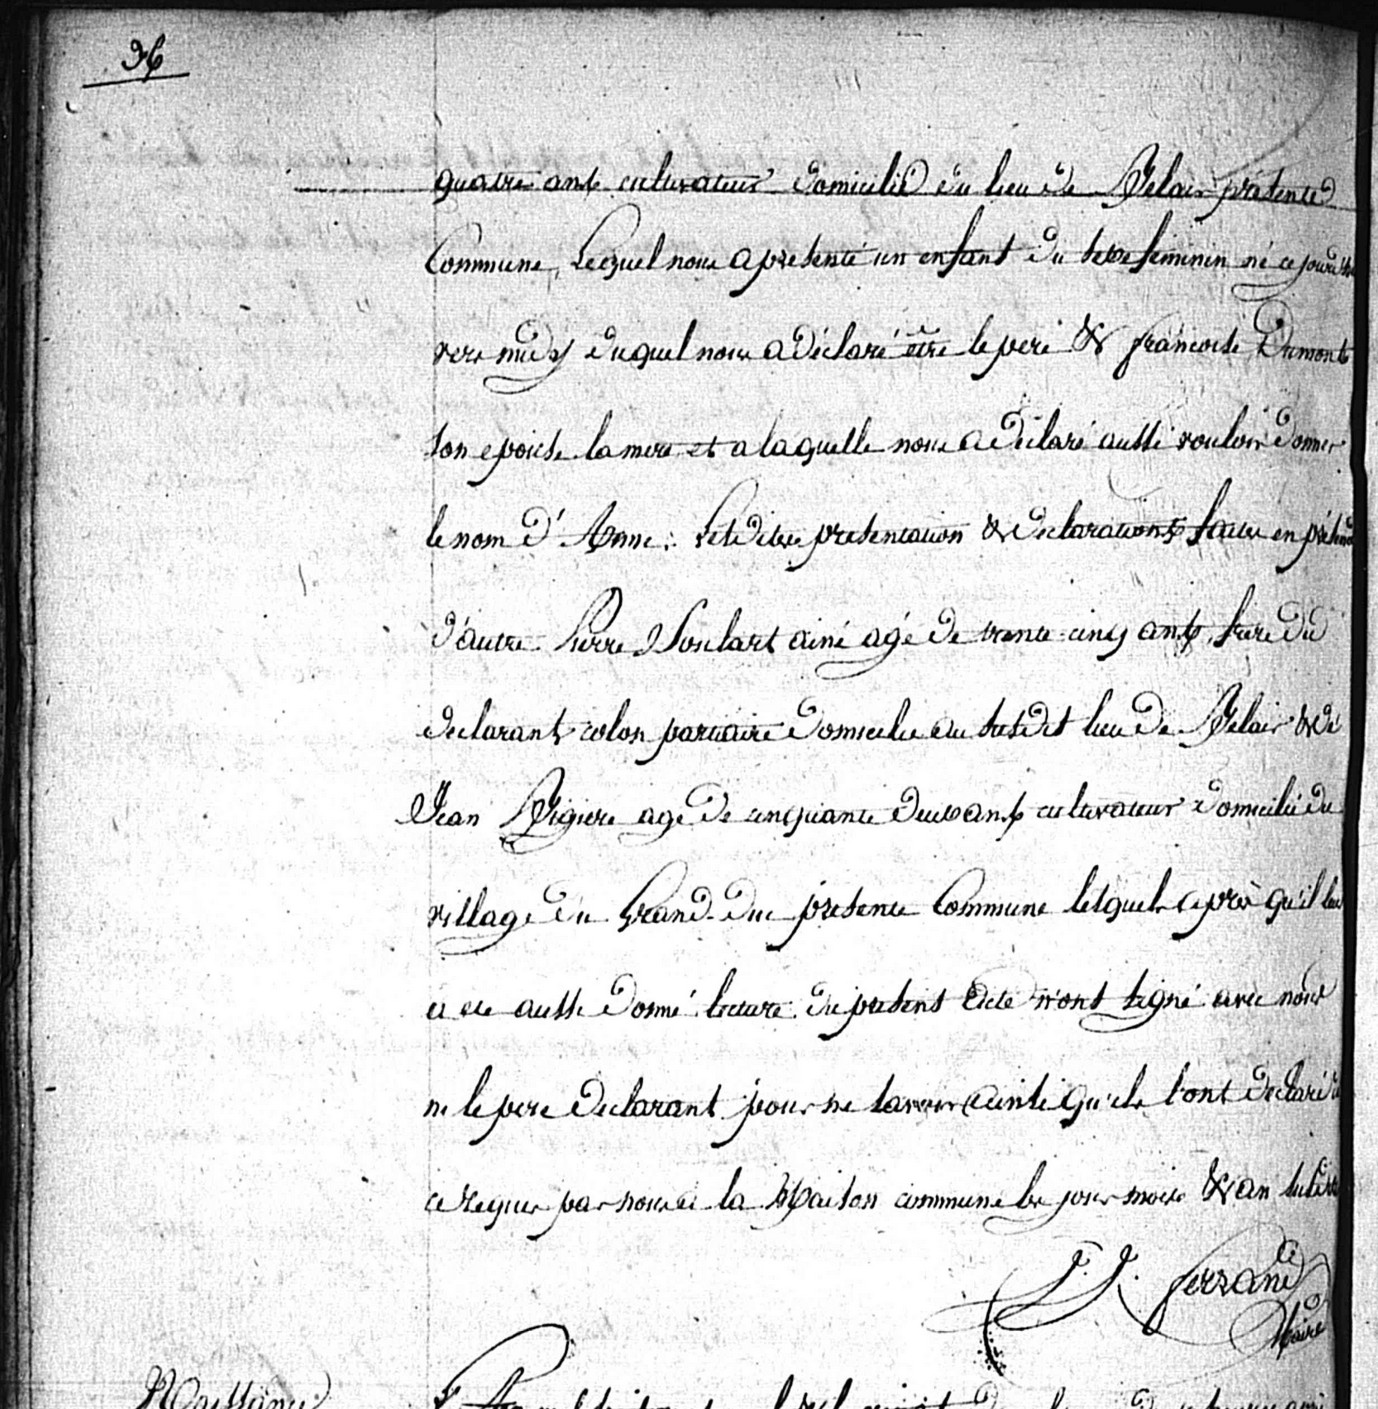 36
quatre ans cultivateur domicilié du lieu de Belair présente
Commune, Lequel nous a présenté un enfant du sexe feminin né ce jourd'hui
vers midy duquel nous a déclaré être le pere & francoise Dumont
son epouse la mere et a laquelle nous a déclaré aussi vouloir donner
le nom d'Anne: Lesdites presentation & declarations faites en présence
d'autre Pierre Soulart ainé agé de trente cinq ans, frere du
declarant, colon partiaire domicilié au susdit lieu de Belair & de
Jean agé de cinquante deux ans cultivateur domicilié du
village du Grand-duc presente Commune lesquels après qu'il leur
a été aussi donné lecture du présent acte n'ont signé avec nous
ni le pere declarant pour ne savoir ainsi qu'ils l'ont déclaré de
ce requis par nous a la Maison commune les jour mois & an susdits
J. J. ferrand
Maire
Naissance